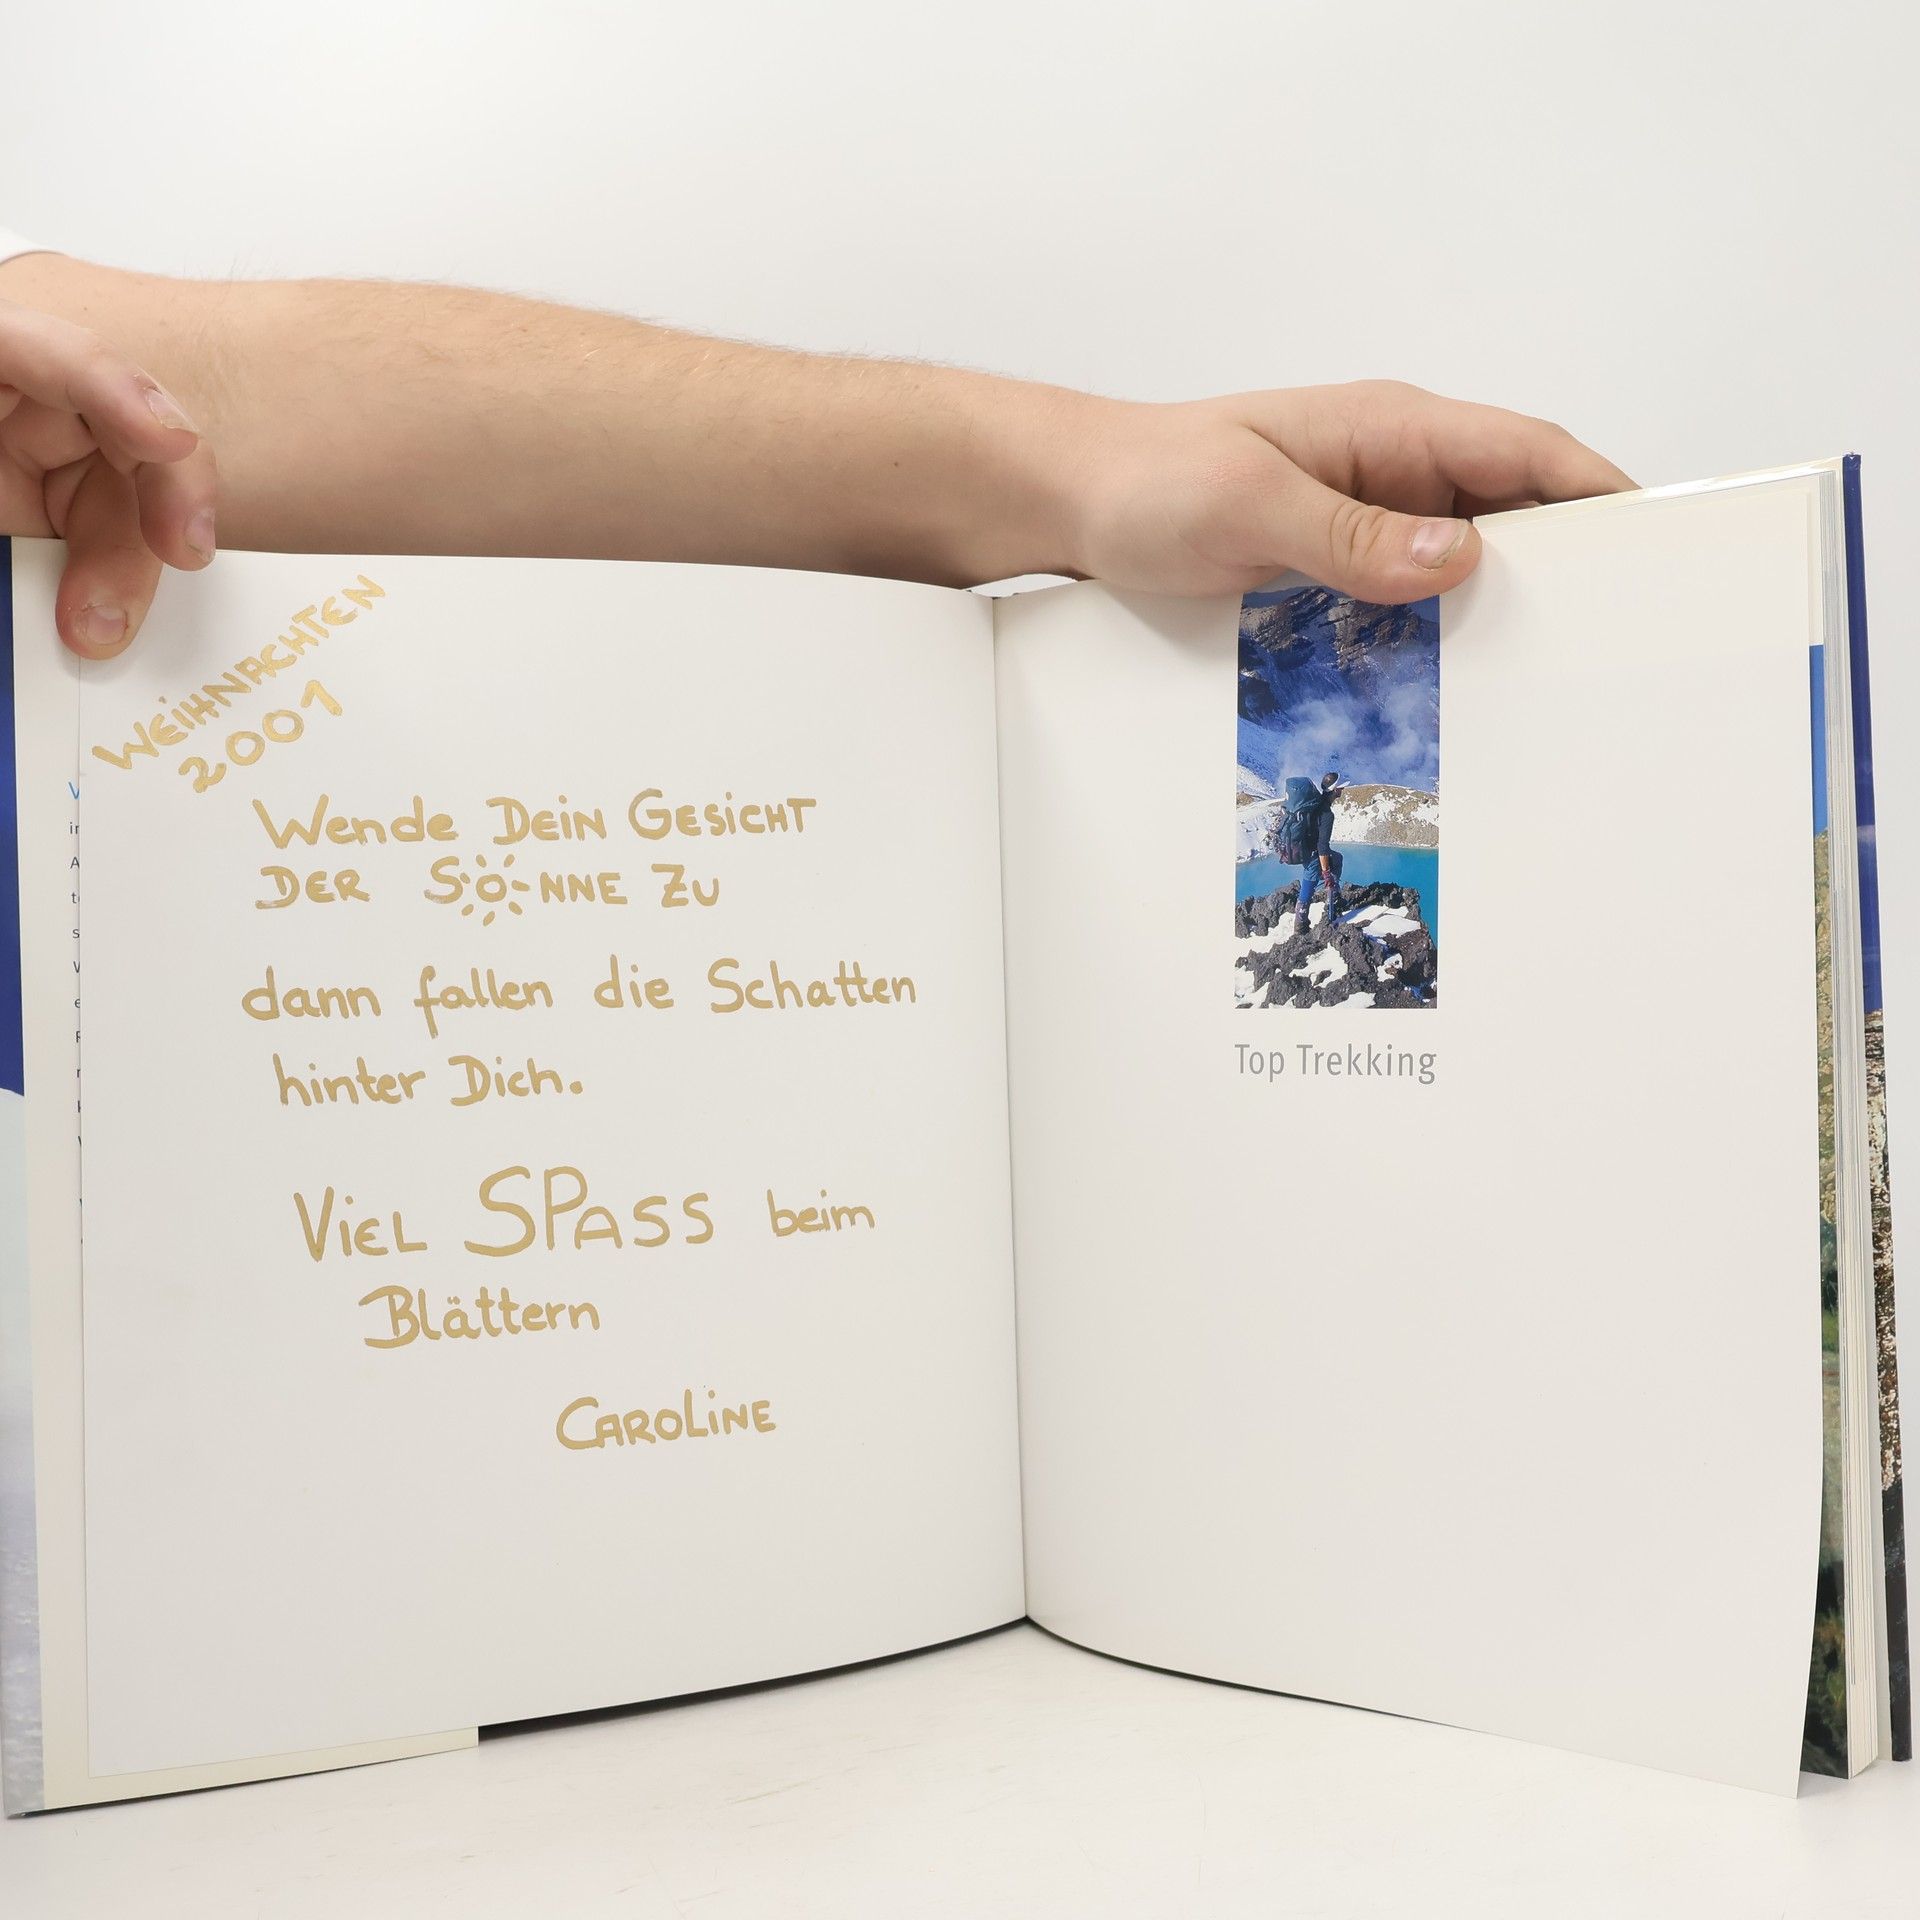 WEIHNACHTEN
2001
Wende DEIN GESICHT
DER SONNE ZU
dann fallen die Schatten
hinter Dich.
VIEL SPASS beim
Blättern
CAROLINE
Top Trekking